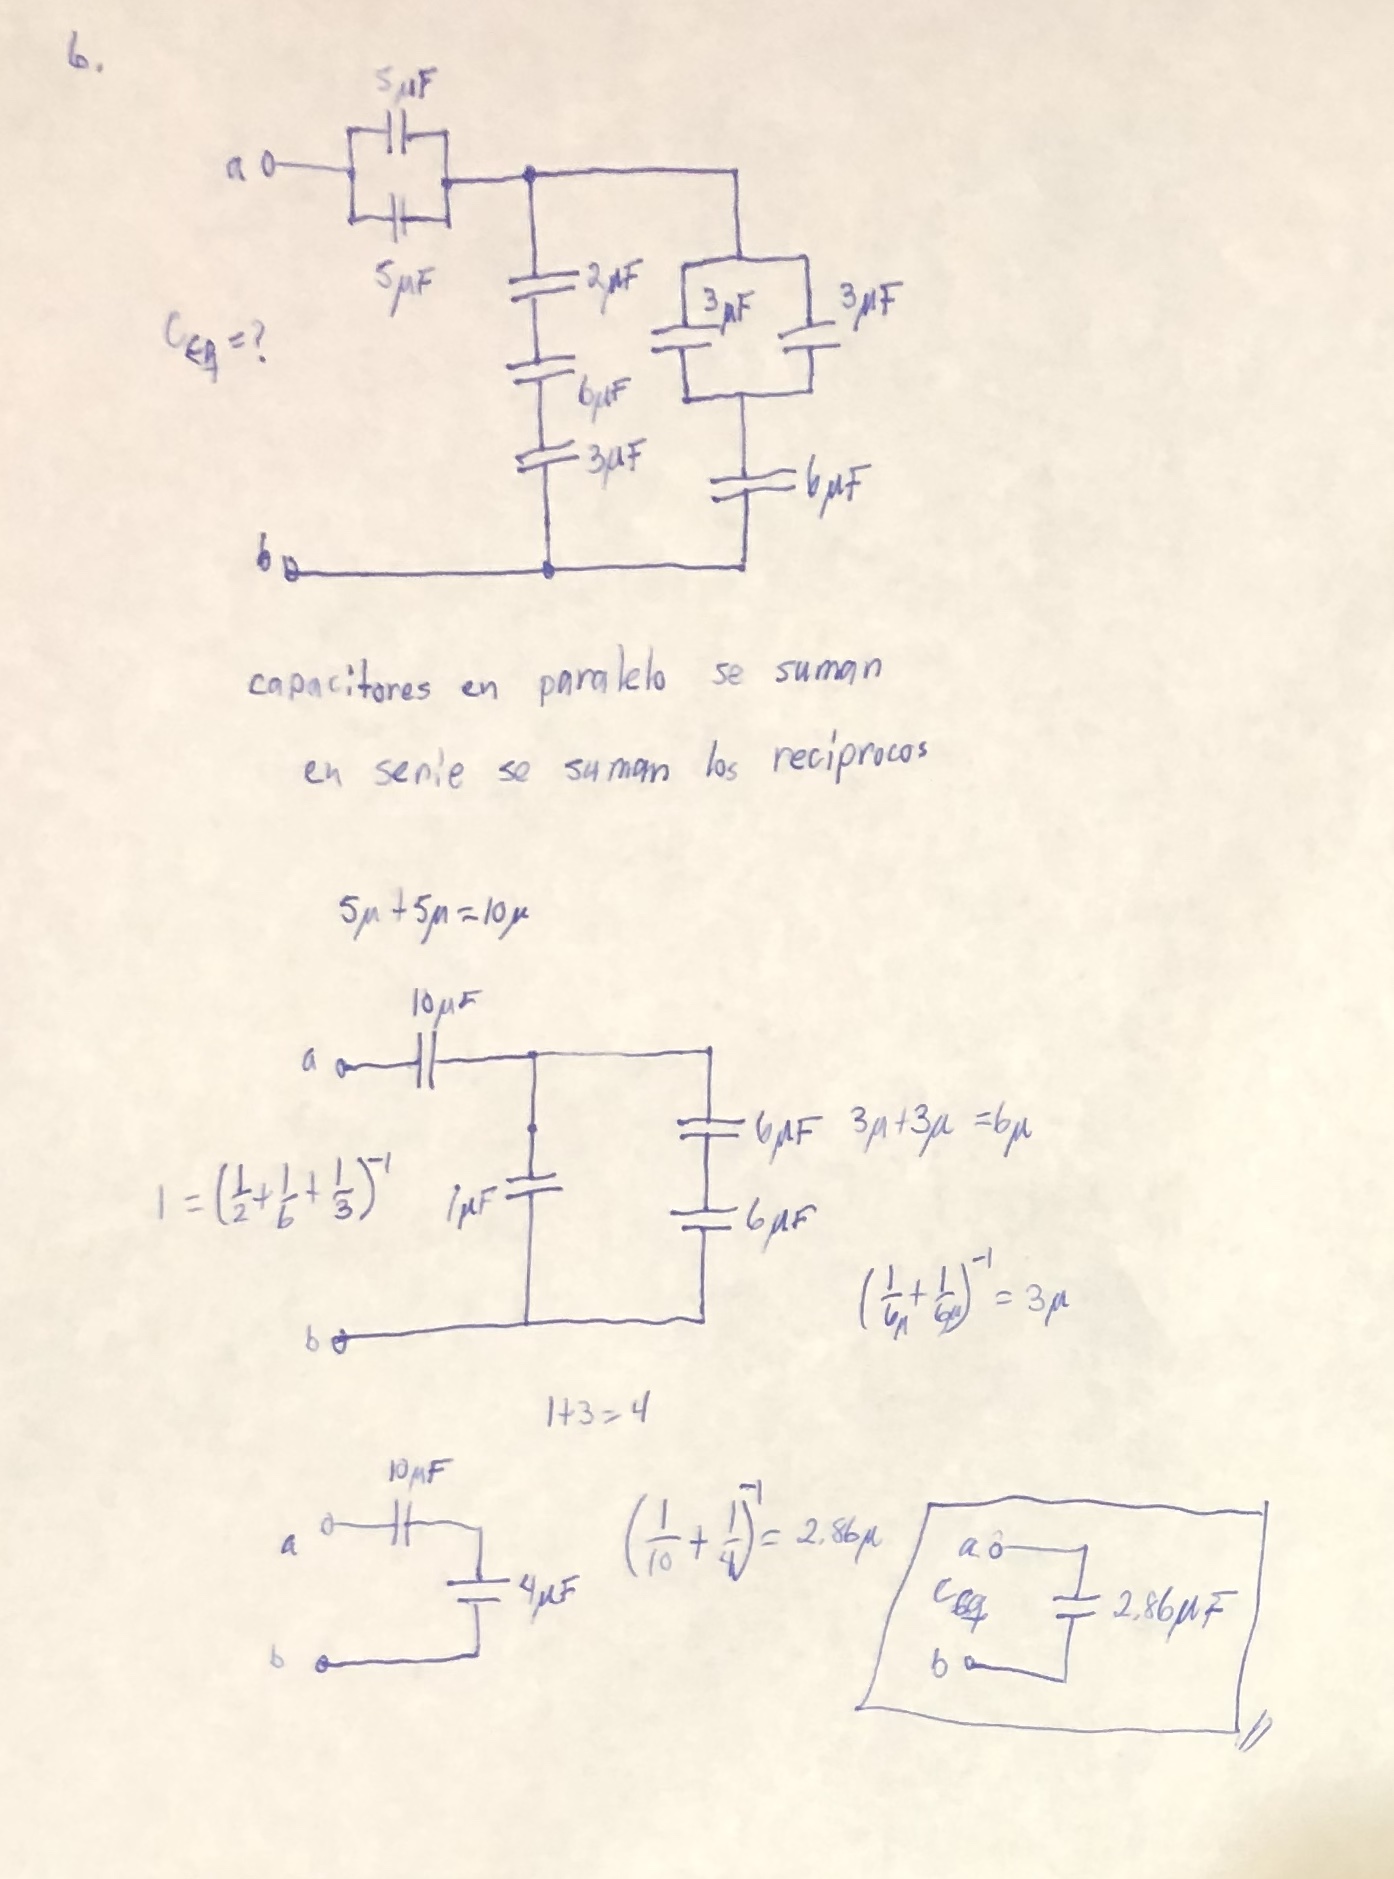 6.
5μF
a
5μF
2μF
3μF
3μF
C_EQ=?
6μF
3μF
6μF
b
capacitores en paralelo se suman
en serie se suman los recíprocos
5μ+5μ=10μ
10μF
a
6μF 3μ+3μ=6μ
1=(1/2+1/6+1/3)^-1 1μF
6μF
(1/6μ+1/6μ)^-1=3μ
b
1+3=4
10μF
a
(1/10+1/4)^-1=2.86μ
4μF
b
a
C_eq 2.86μF
b